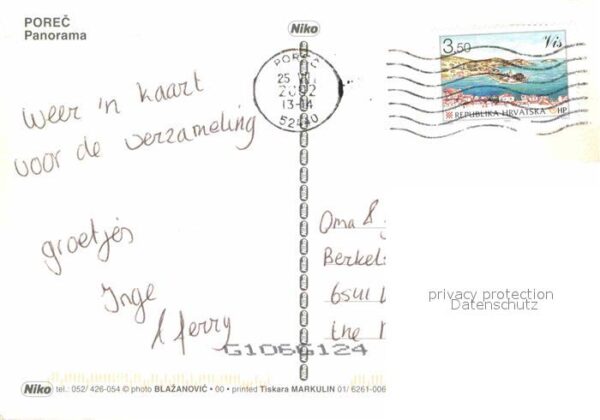 POREČ
Panorama
Niko
POREČ
25
2002
13-14
52440
3,50
Vis
REPUBLIKA HRVATSKA HP
Weer 'n kaart
voor de verzameling
groetjes
Inge
& ferry
Oma &
Berkel
the
privacy protection
Datenschutz
G1066124
Niko tel.: 052/ 426-054 © photo BLAŽANOVIĆ • 00 • printed Tiskara MARKULIN 01/ 6261-006